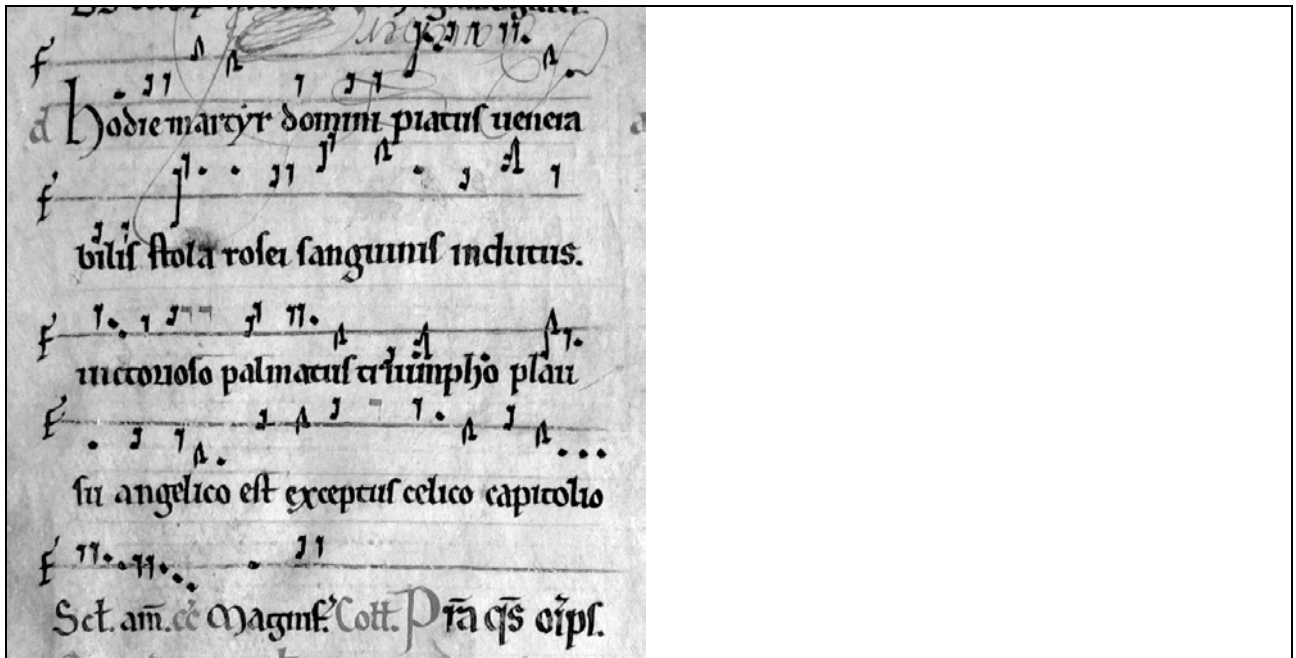 hodie martyr domini piatus uenera
bilis stola rosei sanguinis inclutus.
uictorioso palmatus triumpho plau
su angelico est exceptus celico capitolio
Sct. am̄. Magnif. Coll. P̄ra qs̄ oīps.